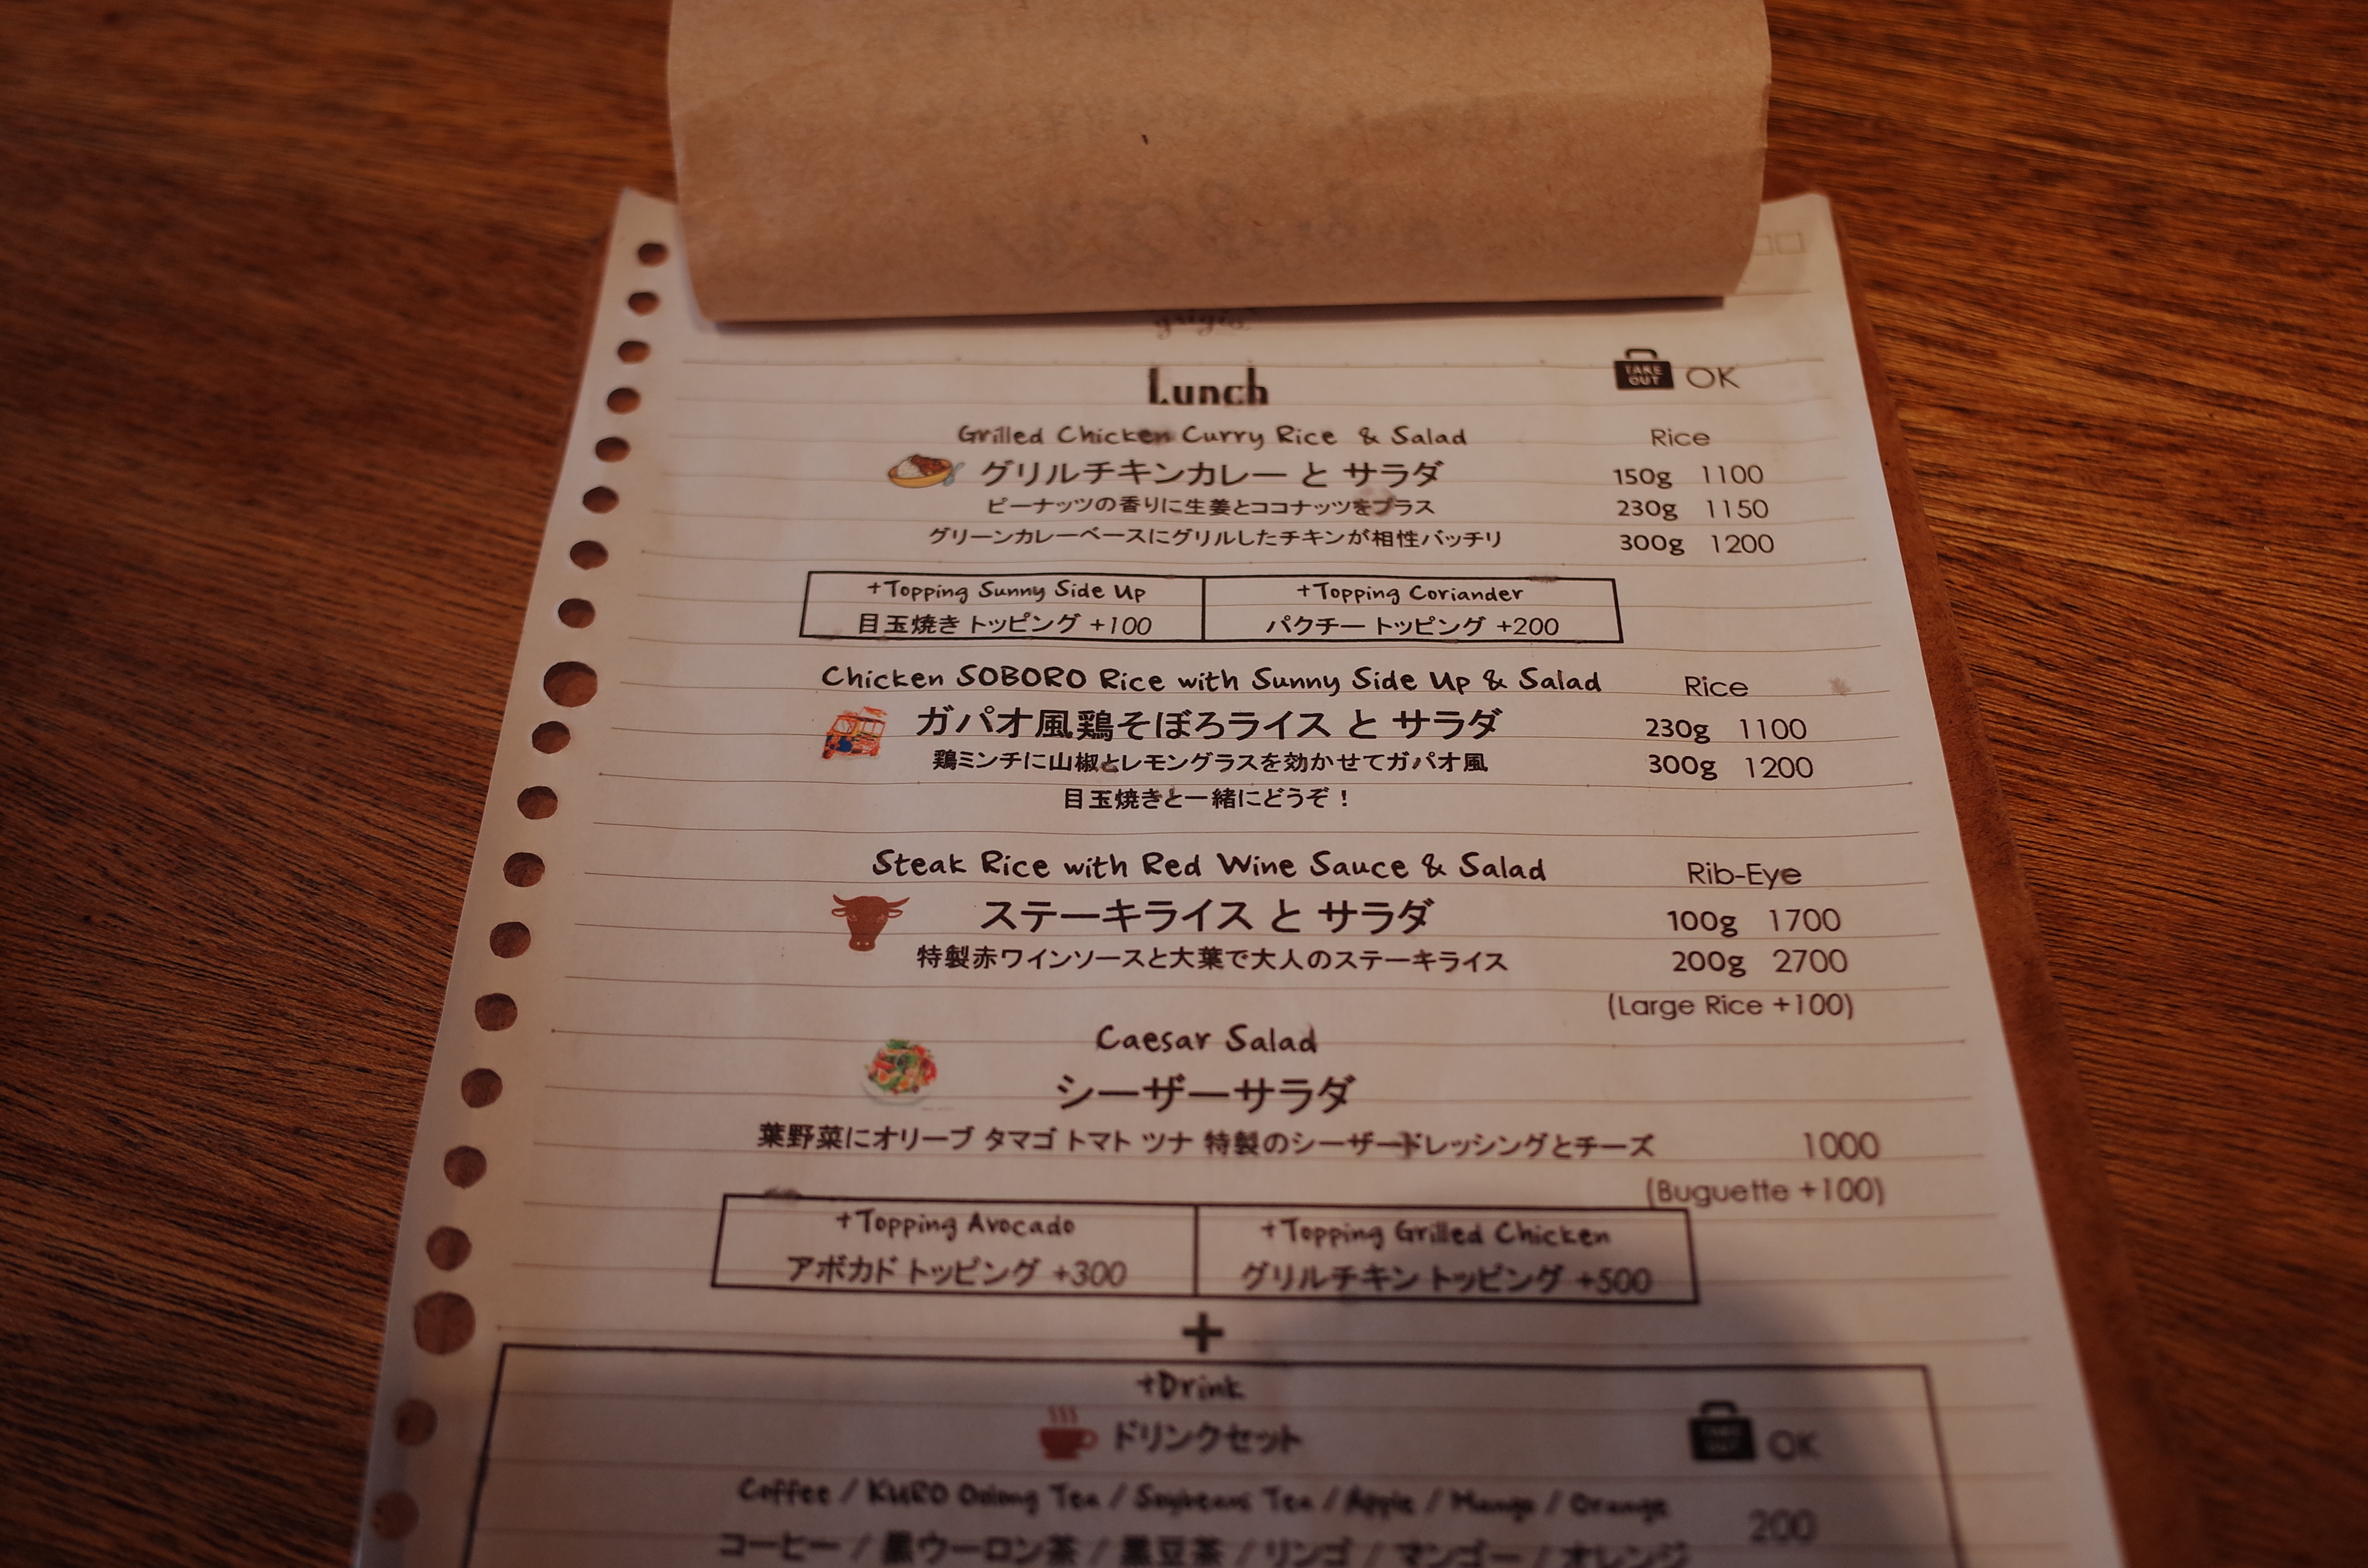 grigio
Lunch
TAKE OUT OK
Grilled Chicken Curry Rice & Salad Rice
グリルチキンカレー と サラダ 150g 1100
ピーナッツの香りに生姜とココナッツをプラス 230g 1150
グリーンカレーベースにグリルしたチキンが相性バッチリ 300g 1200
+Topping Sunny Side Up
目玉焼き トッピング +100
+Topping Coriander
パクチー トッピング +200
Chicken SOBORO Rice with Sunny Side Up & Salad Rice
ガパオ風鶏そぼろライス と サラダ 230g 1100
鶏ミンチに山椒とレモングラスを効かせてガパオ風 300g 1200
目玉焼きと一緒にどうぞ！
Steak Rice with Red Wine Sauce & Salad Rib-Eye
ステーキライス と サラダ 100g 1700
特製赤ワインソースと大葉で大人のステーキライス 200g 2700
(Large Rice +100)
Caesar Salad
シーザーサラダ
葉野菜にオリーブ タマゴ トマト ツナ 特製のシーザードレッシングとチーズ 1000
(Buguette +100)
+Topping Avocado
アボカド トッピング +300
+Topping Grilled Chicken
グリルチキン トッピング +500
+
+Drink
ドリンクセット
TAKE OUT OK
Coffee / KURO Oolong Tea / Soybeans Tea / Apple / Mango / Orange
コーヒー / 黒ウーロン茶 / 黒豆茶 / リンゴ / マンゴー / オレンジ 200